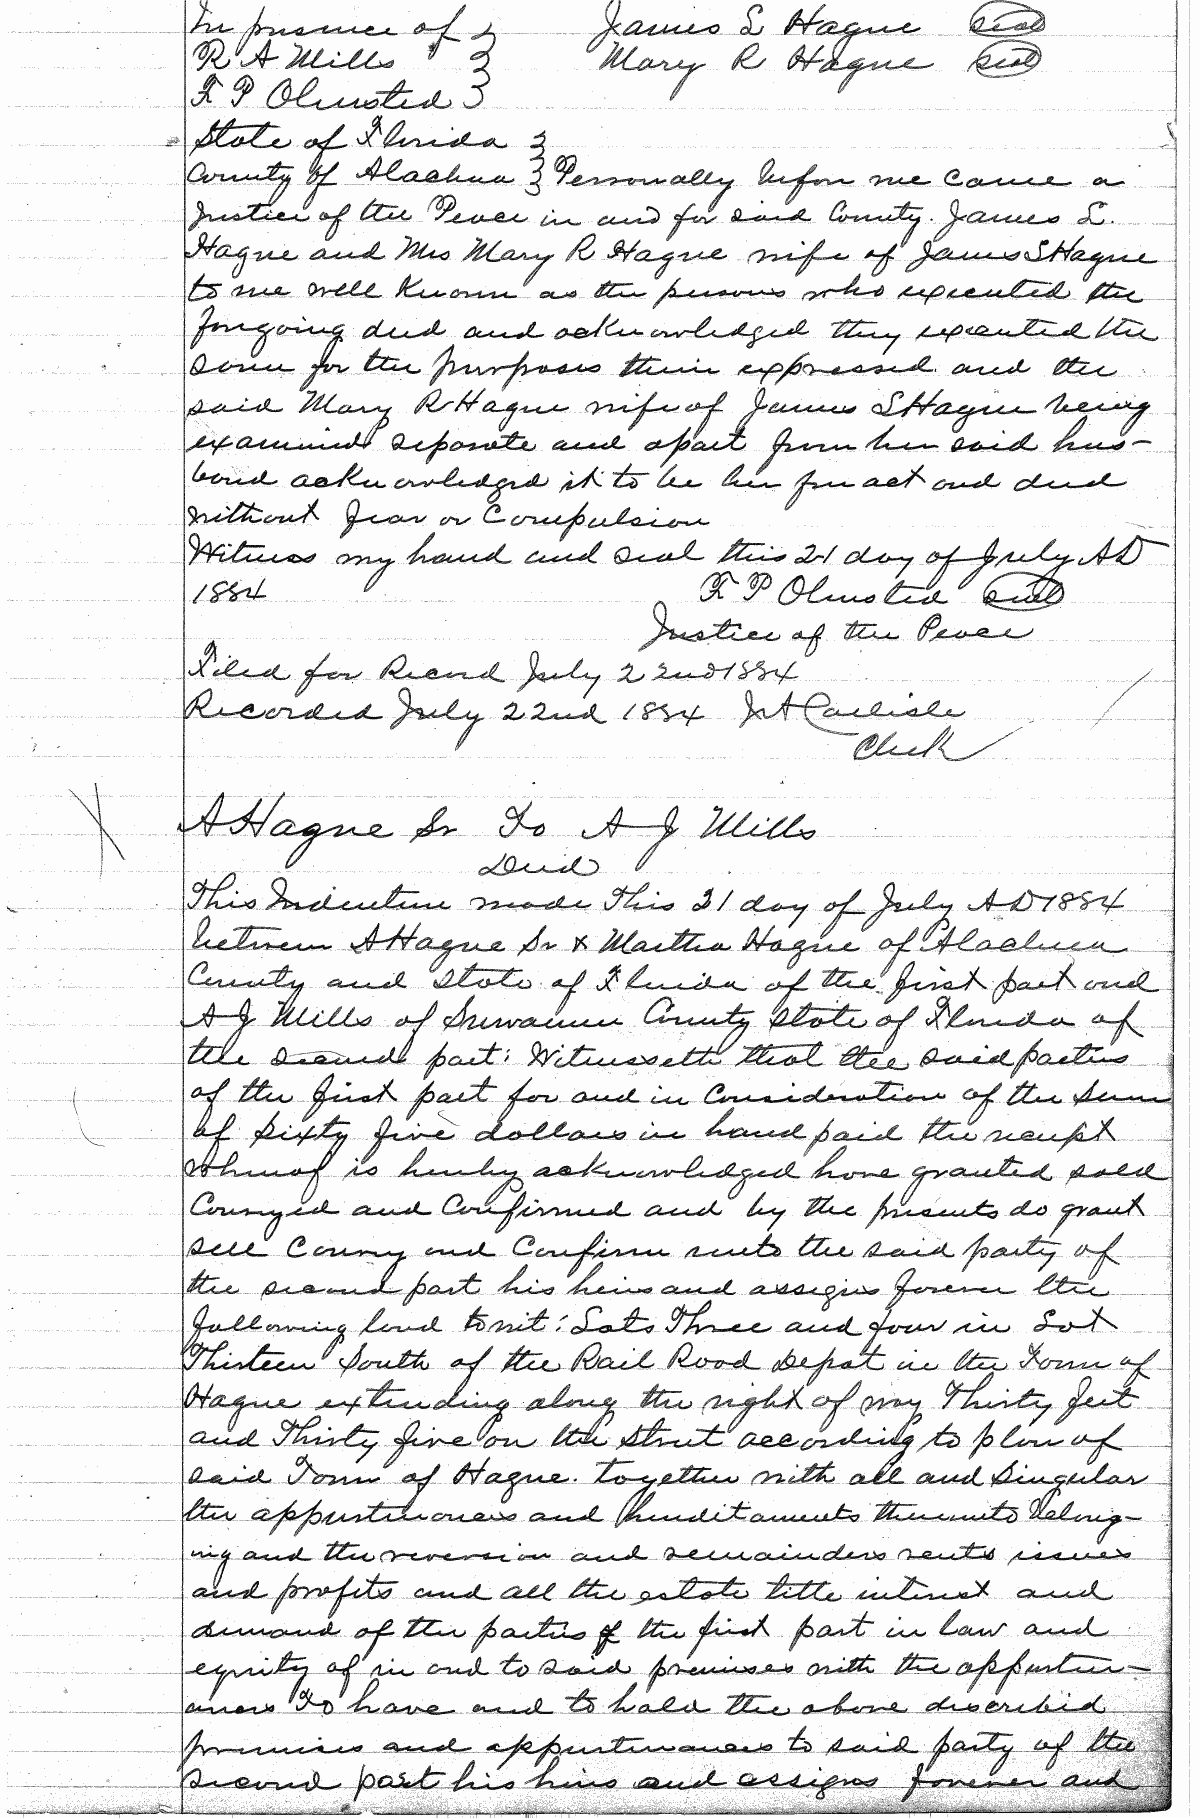 In presence of } James L Hague (seal)
R A Mills } Mary R Hague (seal)
F P Olmsted }
State of Florida }
County of Alachua } Personally before me came a
Justice of the Peace in and for said County. James L.
Hague and Mrs Mary R Hague wife of James L Hague
to me well known as the persons who executed the
foregoing deed and acknowledged they executed the
same for the purposes therin expressed and the
said Mary R Hague wife of James L Hague being
examined separate and apart from her said hus-
band acknowledged it to be her free act and deed
without fear or Compulsion
Witness my hand and seal this 21 day of July AD
1884 F P Olmsted (seal)
Justice of the Peace
Filed for Record July 22nd 1884
Recorded July 22nd 1884 J A Carlisle
Clerk
A Hague Sr To A J Mills
Deed
This Indenture made This 21 day of July AD 1884
between A Hague Sr & Martha Hague of Alachua
County and State of Florida of the first part and
A J Mills of Suwannee County State of Florida of
the second part: Witnesseth that the said parties
of the first part for and in Consideration of the sum
of Sixty five dollars in hand paid the receipt
whereof is hereby acknowledged have granted sold
Conveyed and Confirmed and by the presents do grant
sell Convey and Confirm unto the said party of
the second part his heirs and assigns forever the
following land to wit: Lots Three and four in Lot
Thirteen South of the Rail Road Depot in the Town of
Hague extending along the right of way Thirty feet
and Thirty five on the Street according to plan of
said Town of Hague. together with all and Singular
the appurtenances and hereditaments thereunto belong-
ing and the reversion and remainders rents issues
and profits and all the estate title interest and
demand of the parties of the first part in law and
equity of in and to said premises with the appurten-
ances To have and to hold the above discribed
premises and appurtenances to said party of the
second part his heirs and assigns forever and